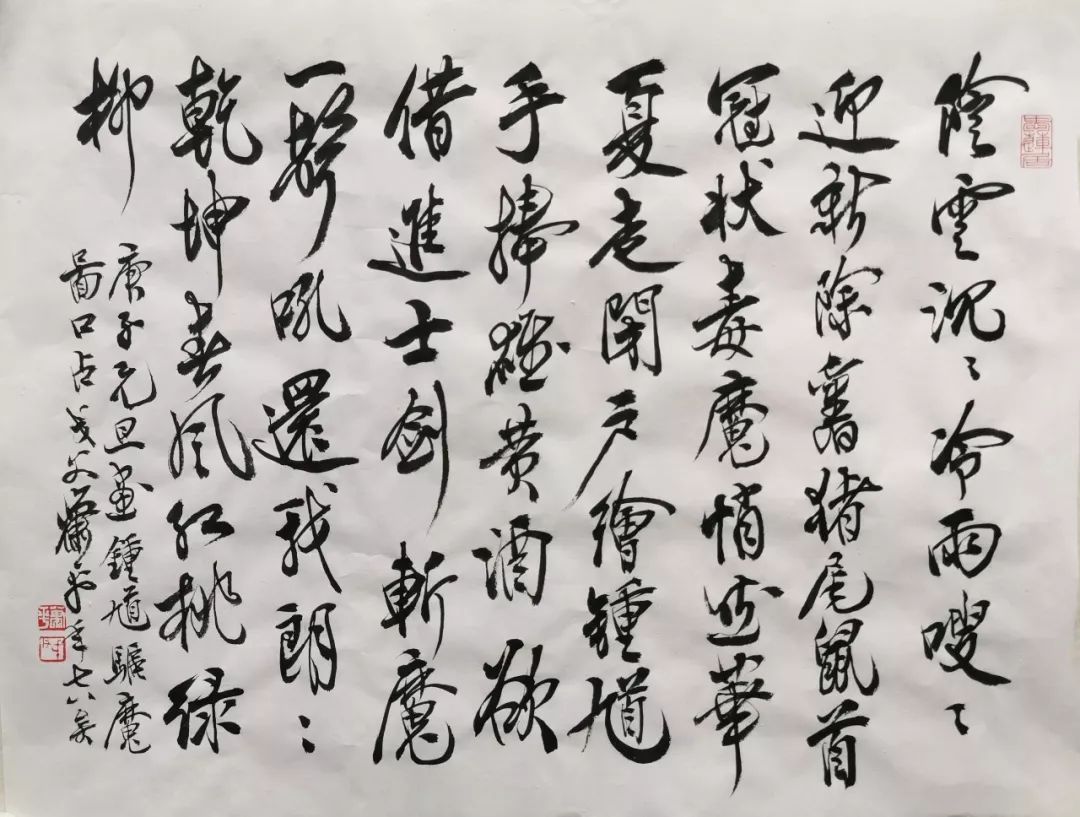 陰雲沉〻冷雨嗖〻
迎新除舊猪尾鼠首
冠狀毒魔悄逆華
夏走閉户繪鍾馗
手捧雄黄酒欲
借進士劍斬魔
一聲吼還我朗〻
乾坤春風紅桃緑
柳
庚子元旦畫鍾馗驅魔
圖口占戈父
年七八矣